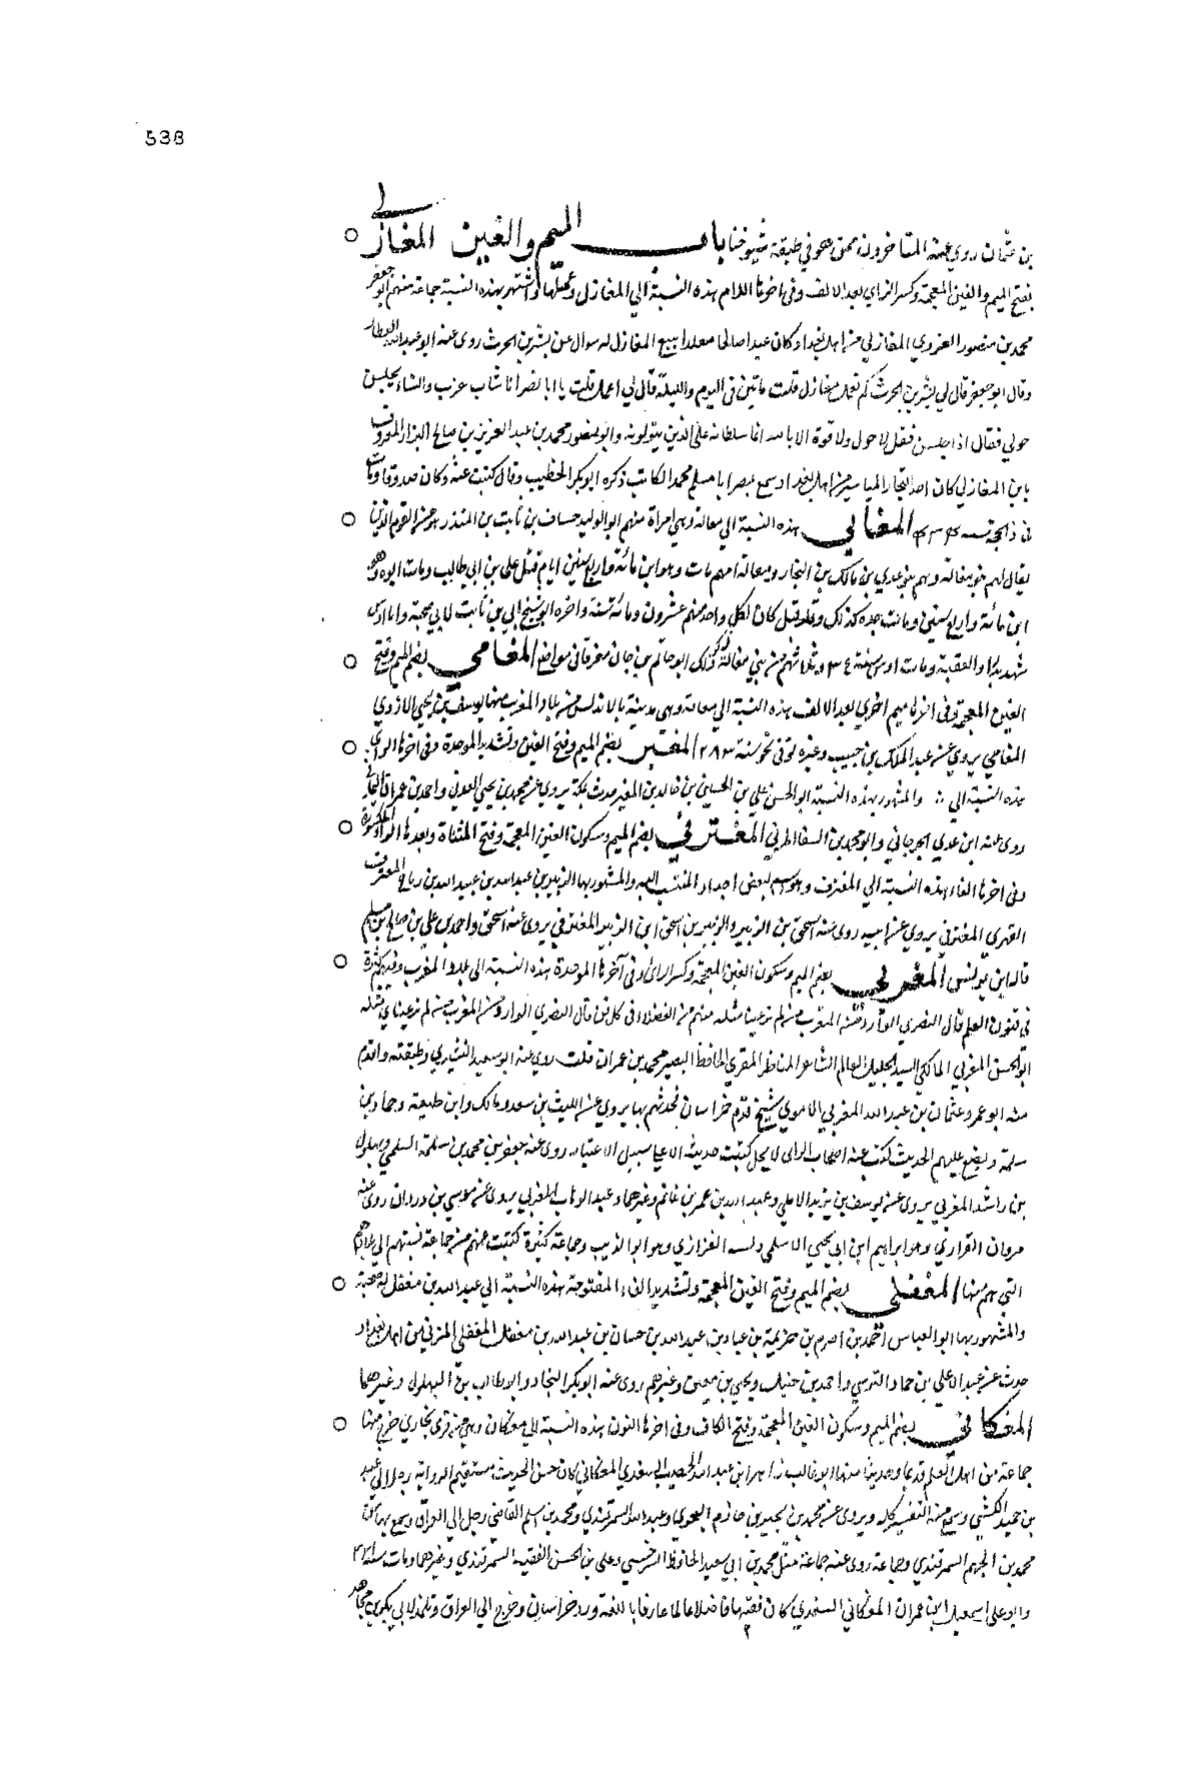 538
بن عثمان روى عنه المتاخرون ممن هو في طبقة شيوخنا باب الميم والغين المغازلي
بفتح الميم والغين المعجمة وكسر الزاي بعد الالف وفي اخرها اللام هذه النسبة الي المغازل وعملها واشتهر بهذه النسبة جماعة منهم ابو جعفر
محمد بن منصور المغازلي من اهل بغداد وكان عبدا صالحا يبيع المغازل له سوال عن بشر بن الحرث روى عنه ابو عبد الله العطار
وقال ابو جعفر قال لي بشر بن الحرث كم تعمل مغازل قلت مائتين في اليوم والليلة قال لي اعمل قلت يا ابا نصر انا شاب عزب والنساء يجلسن
حولي فقال اذا جلسن فقل لا حول ولا قوة الا بالله انما سلطانه على الذين يتولونه وابو منصور محمد بن عبد العزيز بن صالح البزاز المعروف
بابن المغازلي كان احد تجار المياسير من اهل بغداد سمع بمصر ابا مسلم محمد الكاتب ذكره ابو بكر الخطيب وقال كتبت عنه وكان صدوقا ومات
في ذي الحجة سنة المغالي هذه النسبة الي مغالة وهي امراة منهم ابو الوليد حسان بن ثابت بن المنذر هو من القوم الذين
يقال لهم بنو مغالة وهم بنو عدي بن مالك بن النجار ومغالة امهم مات وهو ابن مائة واربع سنين ايام قتل علي بن ابي طالب ومات ابوه وهو
ابن مائة واربع سنين ومات جده كذلك وقد قيل كان لكل واحد منهم عشرون ومائة سنة واخوه ابو شيخ ابي بن ثابت
شهد بدرا والعقبة ومات من بني مغالة ذلك ابو حاتم بن حبان المغامي بضم الميم وفتح
الغين المعجمة وفي اخرها ميم اخرى بعد الالف هذه النسبة الي مغامة وهي مدينة بالاندلس من بلاد المغرب منها يوسف بن يحيى الازدي
المغامي يروي عن عبد الملك بن حبيب وغيره توفي نحو سنة ٢٨٣ المغبر بضم الميم وفتح الغين وتشديد الموحدة وفي اخرها الراء
هذه النسبة الي : والمشهور بهذه النسبة ابو الحسن علي بن الحسين بن خالد بن المغبر حدث بمكة يروي عن محمد بن يحيى العدني واحمد بن عمران
روى عنه ابن عدي الجرجاني وابو محمد بن السقا المزني المغترفي بضم الميم وسكون الغين المعجمة وفتح المثناة وبعدها الراء المكسورة
وفي اخرها الفاء هذه النسبة الي المغترف وهو اسم لبعض اجداد المنتسب اليه والمشهور بها الزبير بن عبد الله بن عبيد الله بن رباح المغترف
الفهري المغترفي يروي عن ابيه روى عنه اسحق بن الزبير والزبير بن اسحق ابن الزبير المغترفي يروي عنه اسحق واحمد بن علي بن صالح بن مسلم
قاله ابن يونس المغربي بفتح الميم وسكون الغين المعجمة وكسر الراء وفي آخرها الموحدة هذه النسبة الي بلاد المغرب وفيهم كثرة
في فنون العلم قال البصري الوارد من المغرب من لم تر عينا مثله منهم من الفضلاء في كل فن قال البصري الوارد من المغرب من لم تر عيناي مثله
ابو الحسن المغربي المالكي السيد الجليل العالم الشاعر المناظر المقري الحافظ البصير محمد بن عمران قلت روى عنه ابو سعيد القشيري وطبقته واقدم
منه ابو عمرو عثمان بن عبد الله المغربي الاموي شيخ قدم خراسان فحدثهم بها يروي عن الليث بن سعد ومالك وابن لهيعة وحماد بن
سلمة ويضع عليهم الحديث كتب عنه اصحاب الراي لا يحل كتبت حديثه الا علي سبيل الاعتبار روى عنه جعفر بن محمد بن سلمة السلمي وبهلول
بن راشد المغربي يروي عن يوسف بن يزيد الايلي وعبد الله بن عمر بن غانم وغيرهما وعبد الوهاب المغربي يروي عن موسى بن وردان روى عنه
مروان الفزاري وهو ابراهيم ابن ابي يحيى الاسلمي الفزاري وهو ابو الذيب وجماعة كثيرة كتبت عنهم من جماعة نسبتهم الي بلادهم
التي هم منها المغفلي بضم الميم وفتح الغين المعجمة وتشديد الفاء المفتوحة هذه النسبة الي عبد الله بن مغفل له صحبة
والمشهور بها ابو العباس احمد بن اصرم بن خزيمة بن عباد بن عبد الله بن حسان بن عبد الله بن مغفل المغفلي المزني من اهل بغداد
حدث عن عبد الاعلي بن حماد النرسي واحمد بن حنبل ويحيى بن معين وغيرهم روى عنه ابو بكر النجاد وابو طالب بن البهلول وغيرهما
المغكاني بضم الميم وسكون الغين المعجمة وفتح الكاف وفي اخرها النون هذه النسبة الي مغكان وهي من قرى بخارى خرج منها
جماعة من اهل العلم قديما وحديثا منها ابو غالب زاهر ابن عبد الله الخصيب السغدي المغكاني كان حسن الحديث مستقيم الرواية رحل الي عبد
بن حميد الكشي وسمع منه التفسير كله ويروي عن محمد بن بجير بن حازم البجيري وعبد الله السمرقندي ومحمد بن اسلم القاضي رحل الي العراق وسمع بها من
محمد بن الجهم السمرقندي وجماعة روى عنه جماعة مثل محمد بن ابي سعيد الحافظ السرخسي وعلي بن الحسن الفقيه السمرقندي وغيرهما ومات سنة
وابو علي اسمعيل ابن عمران المغكاني السغدي كان فقيها فاضلا عالما عارفا باللغة ورد خراسان وخرج الي العراق وتلمذ لابي بكر بن مجاهد